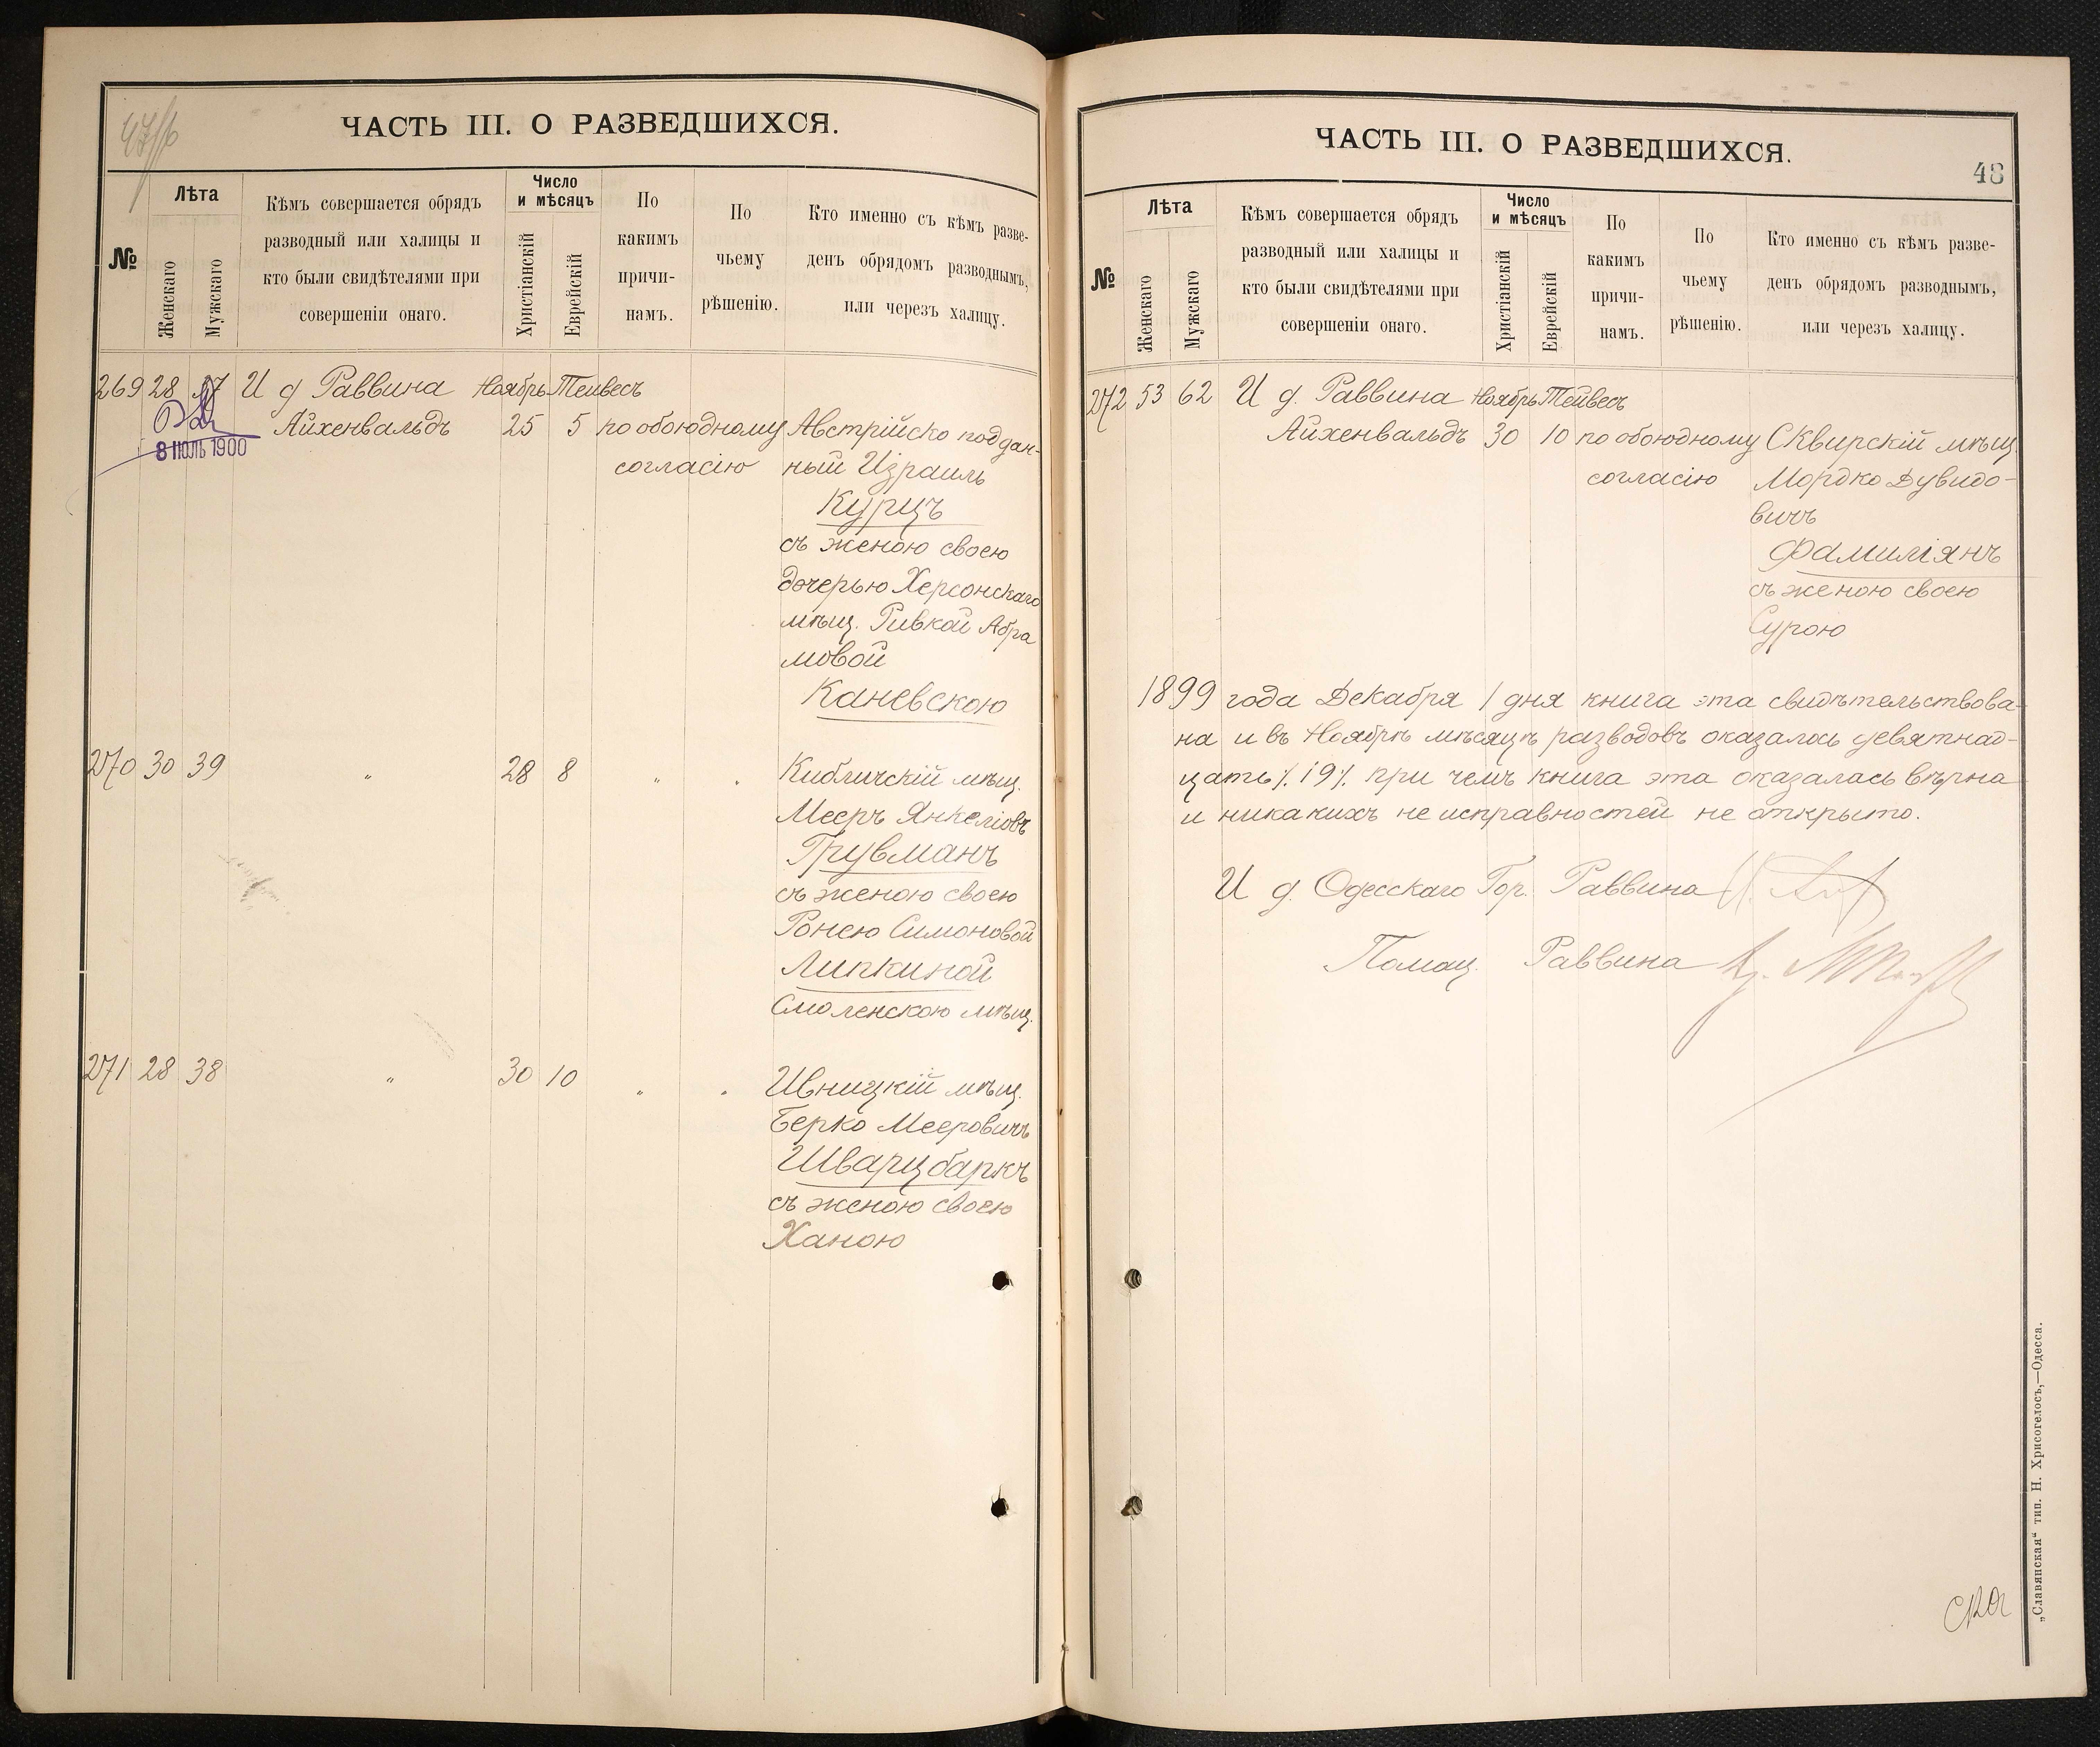 ЧАСТЬ III. О РАЗВЕДШИХСЯ.
№
Лѣта
Женскаго
Мужскаго
Кѣмъ совершается обрядъ
разводный или халицы и
кто были свидѣтелями при
совершеніи онаго.
Число
и мѣсяцъ
Христіанскій
Еврейскій
По
какимъ
причи-
намъ.
По
чьему
рѣшенію.
Кто именно съ кѣмъ разве-
денъ обрядомъ разводнымъ,
или черезъ халицу.
269 28 И д Раввина Ноябрь Тейвесъ
Айхенвальдъ 25 5 по обоюдному Австрійско поддан-
8 ІЮЛЬ 1900
согласію ный Израиль
Курцъ
съ женою своею
дочерью Херсонскаго
мѣщ. Ривкой Абра
мовой
Каневскою
270 30 39 " 28 8 " " Кибличскій мѣщ.
Мееръ Янкеліовъ
Грувманъ
съ женою своею
Ронею Симоновой
Липкиной
Смоленскою мѣщ.
271 28 38 " 30 10 " " Ивницкій мѣщ.
Берко Мееровичъ
Шварцбаркъ
съ женою своею
Ханою
ЧАСТЬ III. О РАЗВЕДШИХСЯ.
48
№
Лѣта
Женскаго
Мужскаго
Кѣмъ совершается обрядъ
разводный или халицы и
кто были свидѣтелями при
совершеніи онаго.
Число
и мѣсяцъ
Христіанскій
Еврейскій
По
какимъ
причи-
намъ.
По
чьему
рѣшенію.
Кто именно съ кѣмъ разве-
денъ обрядомъ разводнымъ,
или черезъ халицу.
272 53 62 И д. Раввина Ноябрь Тейвесъ
Айхенвальдъ 30 10 по обоюдному Сквирскій мѣщ.
согласію Мордко Дувидо-
вичъ
Фамиліянъ
съ женою своею
Сурою
1899 года Декабря 1 дня книга эта свидѣтельствова-
на и въ Ноябрѣ мѣсяцѣ разводовъ оказалось девятнад-
цать /. 19 /. при чемъ книга эта оказалась вѣрна
и никакихъ не исправностей не открыто.
И д. Одесскаго Гор. Раввина
Помощ. Раввина
„Славянская“ тип. Н. Хрисогелосъ,—Одесса.